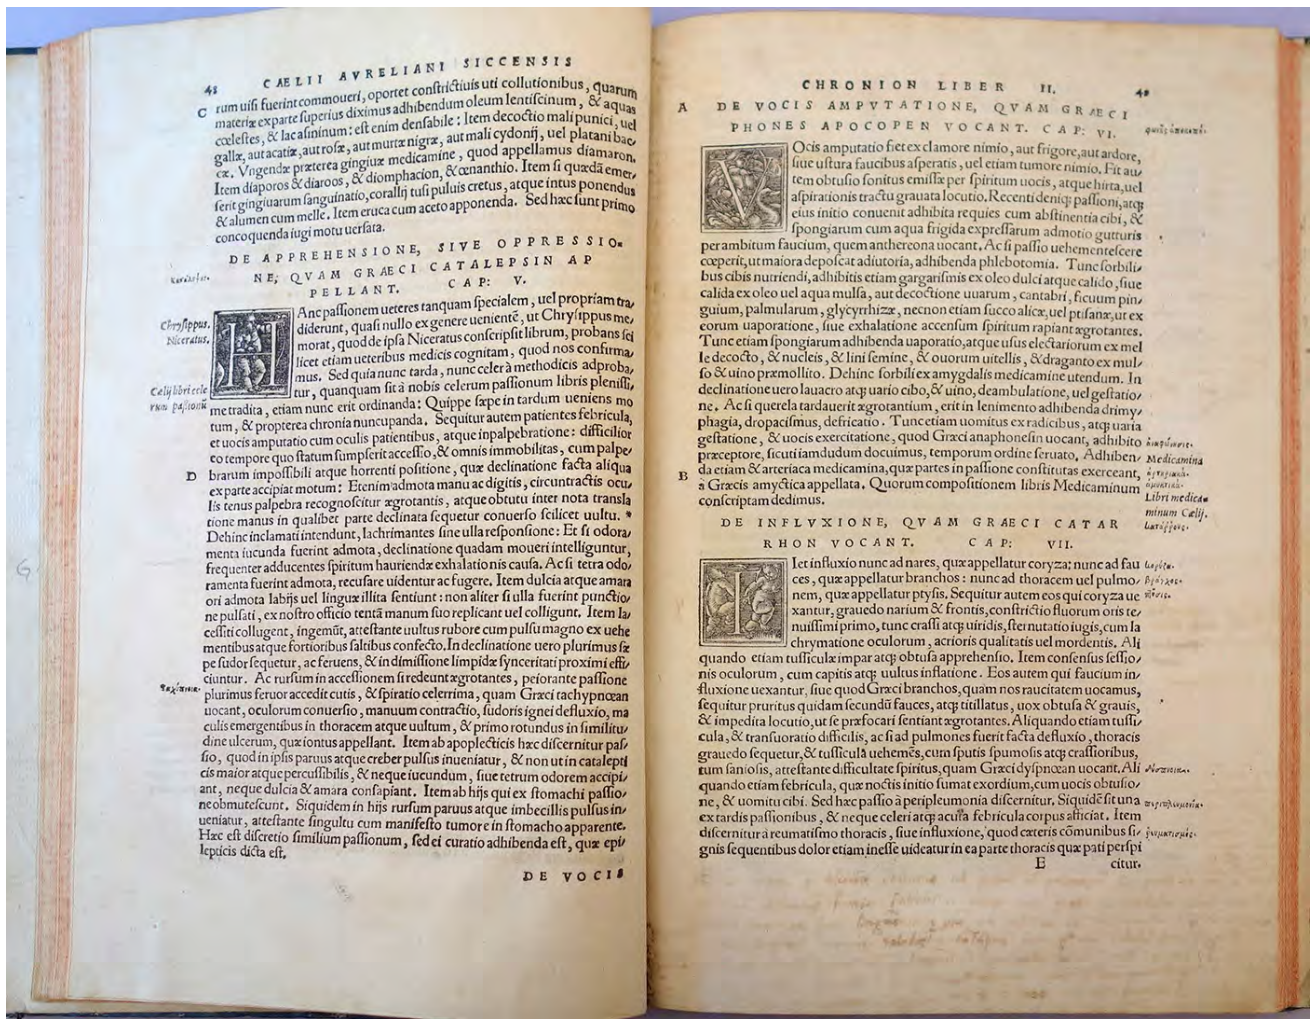 48 CAELII AVRELIANI SICCENSIS
C rum uisi fuerint commoueri, oportet constrictiuis uti collutionibus, quarum
materiæ ex parte superius diximus adhibendum oleum lentiscinum, & aquas
cœlestes, & lac asininum: est enim densabile: Item decoctio mali punici, uel
gallæ, aut acatiæ, aut rosæ, aut murtæ nigræ, aut mali cydonij, uel platani bac/
cæ. Vngendæ præterea gingiuæ medicamine, quod appellamus diamaron.
Item diaporos & diaroos, & diomphacion, & œnanthio. Item si quædā emer/
serit gingiuarum sanguinatio, corallij tusi puluis cretus, atque intus ponendus
& alumen cum melle. Item eruca cum aceto apponenda. Sed hæc sunt primo
concoquenda iugi motu uersata.
DE APPREHENSIONE, SIVE OPPRESSIO=
NE, QVAM GRAECI CATALEPSIN AP
PELLANT. CAP: V.
Chrysippus.
Niceratus.
Cælij libri cele
rum passionū
HAnc passionem ueteres tanquam specialem, uel propriam tra/
diderunt, quasi nullo ex genere uenientē, ut Chrysippus me/
morat, quod de ipsa Niceratus conscripsit librum, probans sci
licet etiam ueteribus medicis cognitam, quod nos confirma/
mus. Sed quia nunc tarda, nunc celer à methodicis adproba/
tur, quanquam sit à nobis celerum passionum libris plenissi/
me tradita, etiam nunc erit ordinanda: Quippe sæpe in tardum ueniens mo
tum, & propterea chronia nuncupanda. Sequitur autem patientes febricula,
et uocis amputatio cum oculis patientibus, atque inpalpebratione: difficilior
eo tempore quo statum sumpserit accessio, & omnis immobilitas, cum palpe/
D brarum impossibili atque horrenti positione, quæ declinatione facta aliqua
ex parte accipiat motum: Etenim admota manu ac digitis, circuntractis ocu/
lis tenus palpebra recognoscitur ægrotantis, atque obtutu inter nota transla
tione manus in qualibet parte declinata sequetur conuerso scilicet uultu. *
Dehinc inclamati intendunt, lachrimantes sine ulla responsione: Et si odora/
menta iucunda fuerint admota, declinatione quadam moueri intelliguntur,
frequenter adducentes spiritum hauriendæ exhalationis causa. Ac si tetra odo/
ramenta fuerint admota, recusare uidentur ac fugere. Item dulcia atque amara
ori admota labijs uel linguæ illita sentiunt: non aliter si ulla fuerint punctio/
ne pulsati, ex nostro officio tentā manum suo replicant uel colligunt. Item la/
cessiti collugent, ingemūt, attestante uultus rubore cum pulsu magno ex uehe
mentibus atque fortioribus saltibus confecto. In declinatione uero plurimus sæ
pe sudor sequetur, ac feruens, & in dimissione limpidæ synceritati proximi effi/
ciuntur. Ac rursum in accessionem si redeunt ægrotantes, peiorante passione
plurimus feruor accedit cutis, & spiratio celerrima, quam Græci tachypnœan
uocant, oculorum conuersio, manuum contractio, sudoris ignei defluxio, ma
culis emergentibus in thoracem atque uultum, & primo rotundus in similitu/
dine ulcerum, quæ iontus appellant. Item ab apoplecticis hæc discernitur pas/
sio, quod in ipsis paruus atque creber pulsus inueniatur, & non ut in catalepti
cis maior atque percussibilis, & neque iucundum, siue tetrum odorem accipi/
ant, neque dulcia & amara consapiant. Item ab hijs qui ex stomachi passio/
ne obmutescunt. Siquidem in hijs rursum paruus atque imbecillis pulsus in/
ueniatur, attestante singultu cum manifesto tumore in stomacho apparente.
Hæc est discretio similium passionum, sed ei curatio adhibenda est, quæ epi/
lepticis dicta est.
DE VOCIS
CHRONION LIBER II. 48
A DE VOCIS AMPVTATIONE, QVAM GRAECI
PHONES APOCOPEN VOCANT. CAP: VI.
VOcis amputatio fiet ex clamore nimio, aut frigore, aut ardore,
siue ustura faucibus asperatis, uel etiam tumore nimio. Fit au/
tem obtusio sonitus emissæ per spiritum uocis, atque hirta, uel
aspirationis tractu grauata locutio. Recenti deniq; passioni, atq;
eius initio conuenit adhibita requies cum abstinentia cibi, &
spongiarum cum aqua frigida expressarum admotio gutturis
per ambitum faucium, quem anthereona uocant. Ac si passio uehementescere
cœperit, ut maiora deposcat adiutoria, adhibenda phlebotomia. Tunc sorbili/
bus cibis nutriendi, adhibitis etiam gargarismis ex oleo dulci atque calido, siue
calida ex oleo uel aqua mulsa, aut decoctione uuarum, cantabri, ficuum pin/
guium, palmularum, glycyrrhizæ, necnon etiam succo alicæ, uel ptisanæ, ut ex
eorum uaporatione, siue exhalatione accensum spiritum rapiant ægrotantes.
Tunc etiam spongiarum adhibenda uaporatio, atque usus electariorum ex mel
le decocto, & nucleis, & lini semine, & ouorum uitellis, & draganto ex mul/
so & uino præmollito. Dehinc sorbili ex amygdalis medicamine utendum. In
declinatione uero lauacro atq; uario cibo, & uino, deambulatione, uel gestatio/
ne. Ac si querela tardauerit ægrotantium, erit in lenimento adhibenda drimy/
phagia, dropacismus, defricatio. Tunc etiam uomitus ex radicibus, atq; uaria
gestatione, & uocis exercitatione, quod Græci anaphonesin uocant, adhibito
præceptore, sicuti iamdudum docuimus, temporum ordine seruato. Adhiben/ Medicamina
da etiam & arteriaca medicamina, quæ partes in passione constitutas exerceant,
B à Græcis amyctica appellata. Quorum compositionem libris Medicaminum
conscriptam dedimus.
Libri medica=
minum Cælij.
DE INFLVXIONE, QVAM GRAECI CATAR
RHON VOCANT. CAP: VII.
FIet influxio nunc ad nares, quæ appellatur coryza: nunc ad fau
ces, quæ appellatur branchos: nunc ad thoracem uel pulmo/
nem, quæ appellatur ptysis. Sequitur autem eos qui coryza ue
xantur, grauedo narium & frontis, constrictio fluorum oris te/
nuissimi primo, tunc crassi atq; uiridis, sternutatio iugis, cum la
chrymatione oculorum, acrioris qualitatis uel mordentis. Ali
quando etiam tussiculæ impar atq; obtusa apprehensio. Item consensus sessio/
nis oculorum, cum capitis atq; uultus inflatione. Eos autem qui faucium in/
fluxione uexantur, siue quod Græci branchos, quam nos raucitatem uocamus,
sequitur pruritus quidam secundū fauces, atq; titillatus, uox obtusa & grauis,
& impedita locutio, ut se præfocari sentiant ægrotantes. Aliquando etiam tussi/
cula, & transuoratio difficilis, ac si ad pulmones fuerit facta defluxio, thoracis
grauedo sequetur, & tussiculā uehemēs, cum sputis spumosis atq; crassioribus,
tum saniosis, attestante difficultate spiritus, quam Græci dyspnœan uocant. Ali
quando etiam febricula, quæ noctis initio sumat exordium, cum uocis obtusio/
ne, & uomitu cibi. Sed hæc passio à peripleumonia discernitur. Siquidē sit una
ex tardis passionibus, & neque celeri atq; acuta febricula corpus afficiat. Item
discernitur à reumatismo thoracis, siue influxione, quod cæteris cōmunibus si/
gnis sequentibus dolor etiam inesse uideatur in ea parte thoracis quæ pati perspi
E citur.